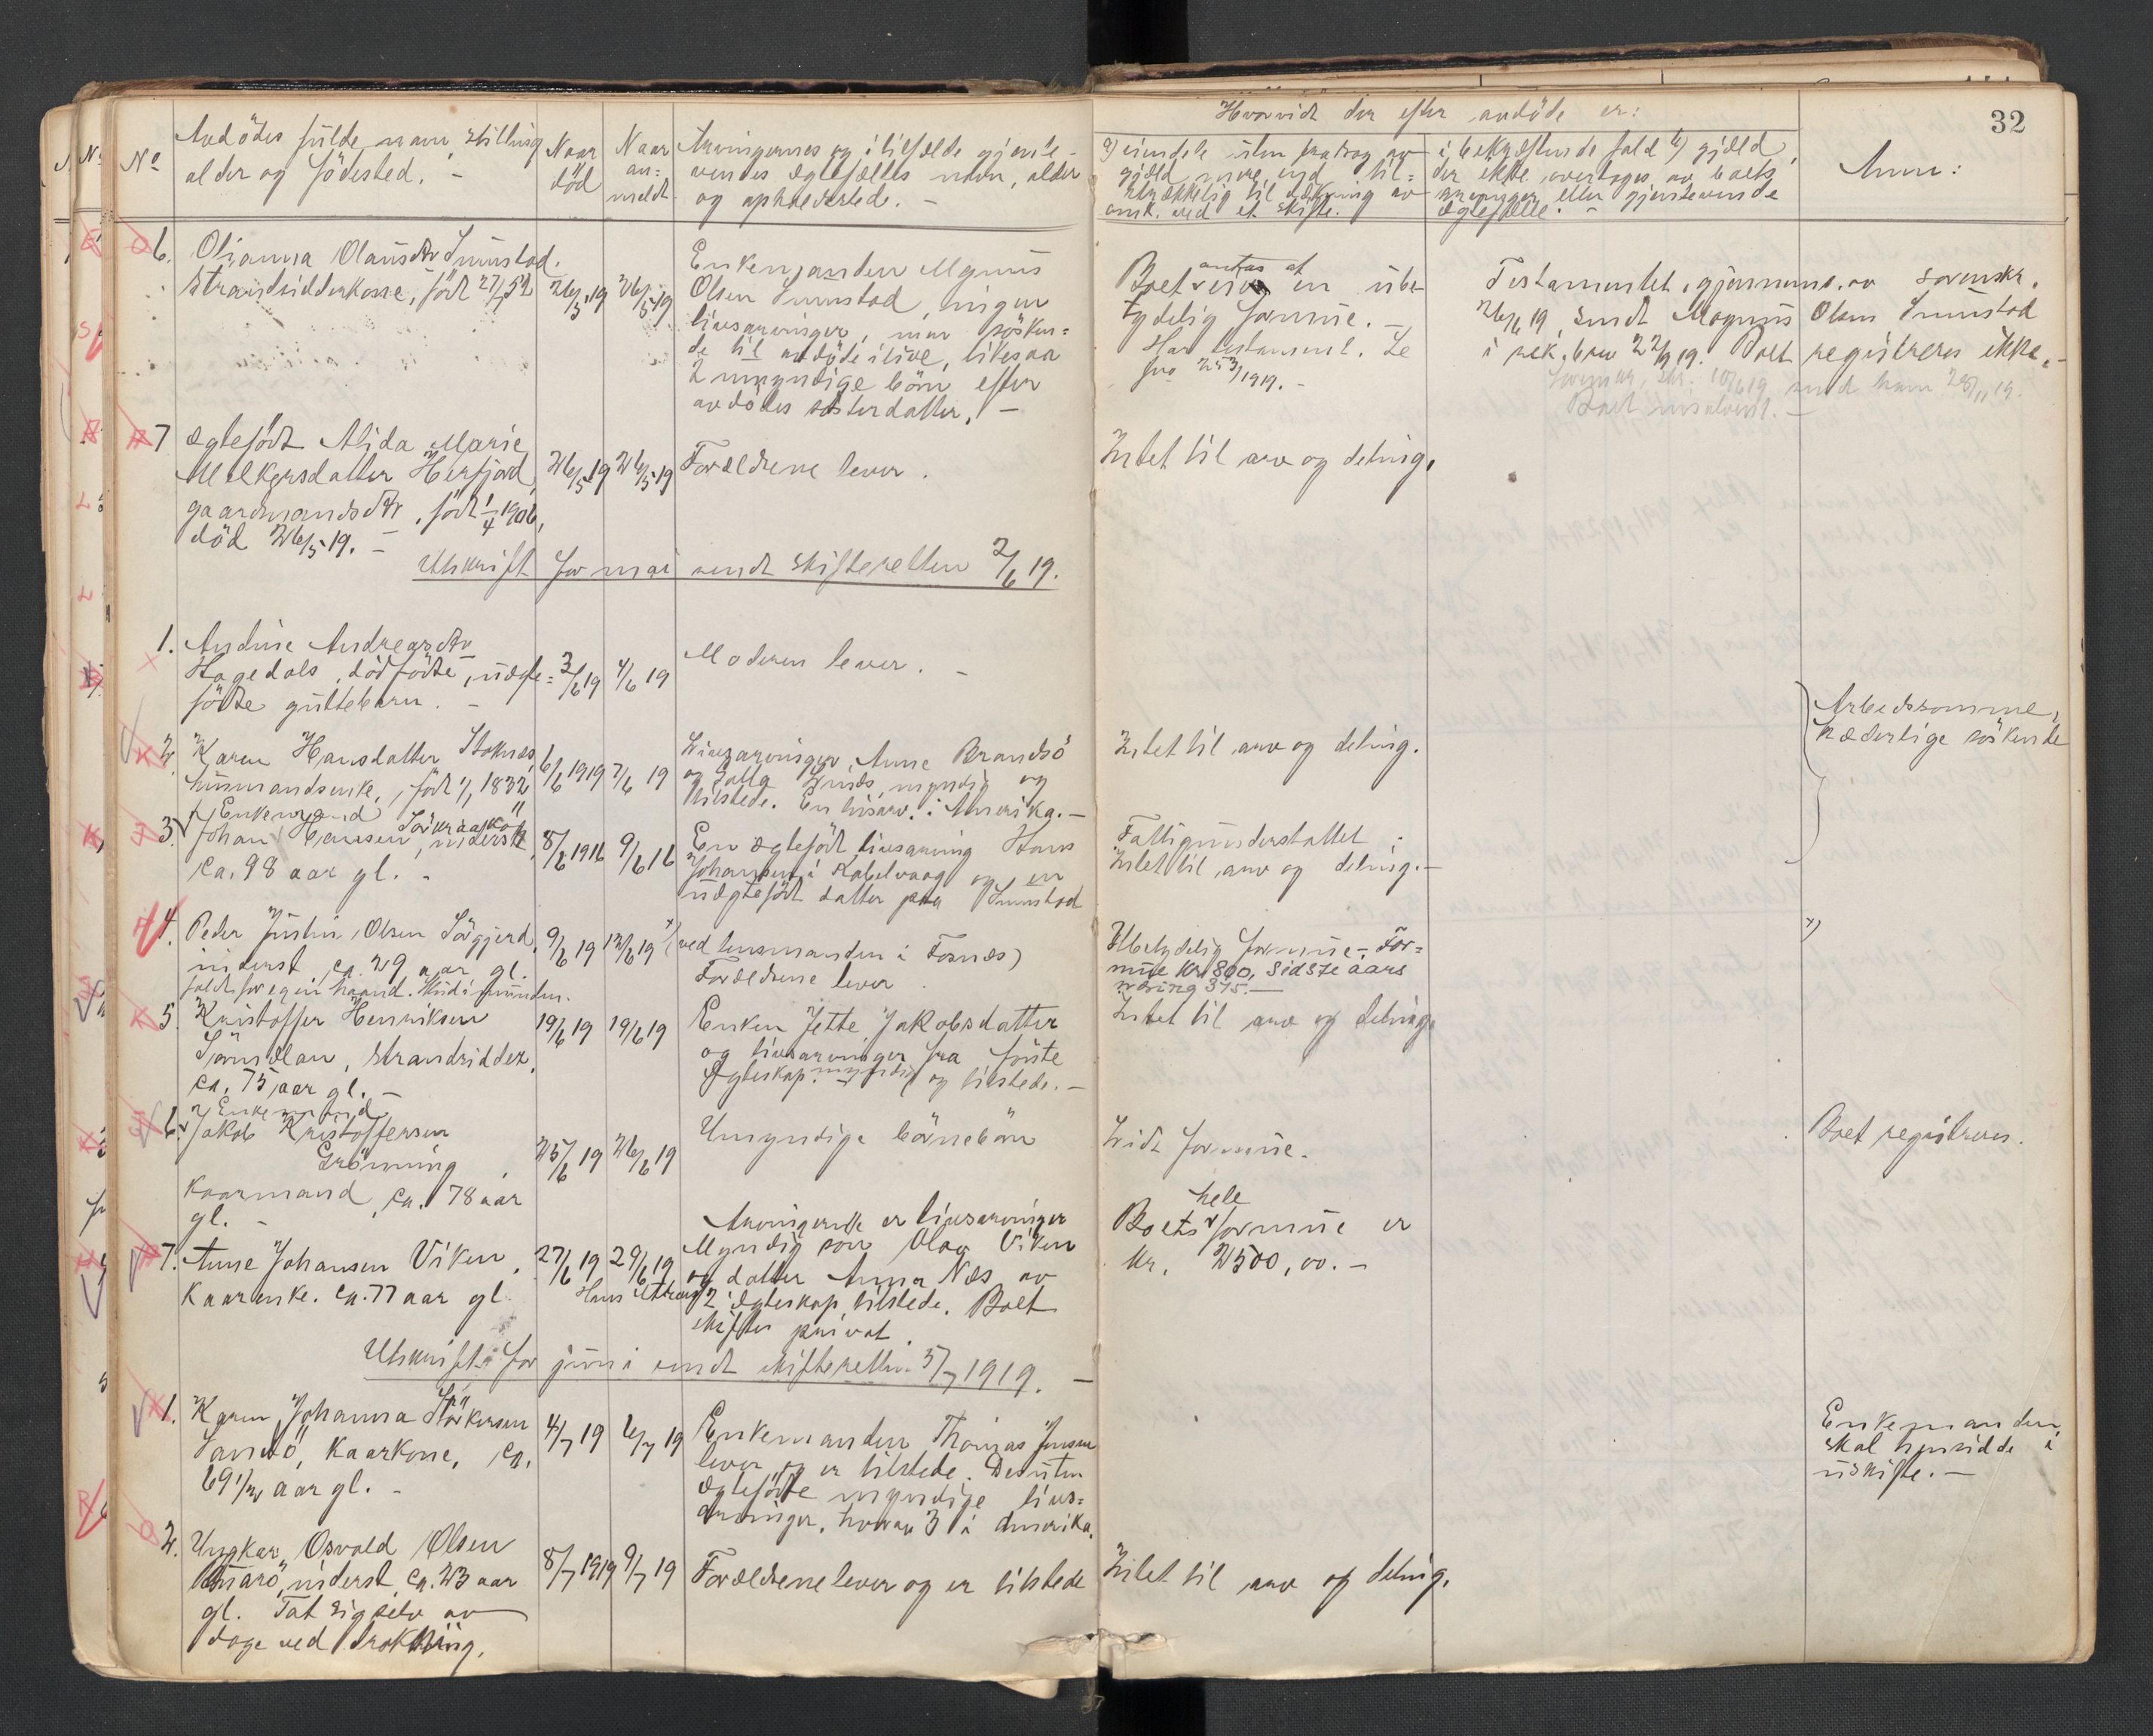 32
No
Avdödes fulde navn, stilling
alder og födested. -
Naar
död
Naar
an=
meldt
Arvingernes og i tilfælde gjenle-
vendes ægtefælles navn, alder
og opholdssted. -
Hvorvidt der efter avdöde er:
a) eiendele uten fradrag av
gjæld mere end til=
strækkelig til dækning av
omk. ved et skifte.
i bekræftende fald b) gjæld,
der ikke overtages av boets
arvinger eller gjenlevende
ægtefælle. -
Anm:
6. Olianna Olausdtr Sunnstad.
strandsidderkone, födt 27/7 52
26/5 19
26/5 19
Enkemanden Magnus
Olsen Sunnstad, ingen
livsarvinger, men sösken=
de til avdöde ilive, likesaa
2 umyndige börn efter
avdödes sösterdatter. -
antas at
Boet eier en ube-
tydelig formue. -
Har testament. Se
fra 25/3 1919. -
Testamentet, gjennems. av sorenskr.
26/6 19, sendt Magnus Olsen Sunnstad
i rek. brev 22/9 19. Boet registreres ikke. -
sendt ham 28/11 19.
Boet insolvent. -
7 Ægtefödt Alida Marie
Melkersdatter Herfjord,
gaardmandsdtr, födt 1/4 1906,
död 26/5 19. -
26/5 19
26/5 19
Forældrene lever.
Intet til arv og deling.
Utskrift for mai sendt skifteretten 2/6 19.
1. Andine Andreasdtr
Hagedals, dödfödte, uægte=
födte guttebarn. -
3/6 19
4/6 19
Moderen lever. -
2. Karen Hansdatter Stoknes,
husmandsenke, födt 1/1 1832
6/6 1919
7/6 19
Livsarvinger, Anne Brandsö
og Jalla Sunds, myndig og
tilstede. En livsarv. i Amerika. -
Intet til arv og deling.
Arbeidsomme,
hæderlige söskende
Enkemand
3. Johan Hansen Sörkraakö
inderst,
ca. 98 aar gl. -
8/6 1916
9/6 16
En ægtefödt livsarving Hans
Johansen i Kabelvaag og en
uægtefödt datter paa Sunnstad
Fattigunderstöttet.
Intet til arv og deling. -
4. Peder Justin Olsen Sörgjerd,
inderst, ca. 29 aar gl.
faldt for egen haand. Skud i munden.
9/6 19
12/6 19
(ved lensmanden i Fosnes)
Forældrene lever.
Ubetydelig formue. - For=
mue kr 800, sidste aars
ligning 375. -
x)
5. Kristoffer Henriksen
Sörsdlan, strandsidder,
ca. 75 aar gl. -
19/6 19
19/6 19
Enken Jette Jakobsdatter
og livsarvinger fra förste
ægteskap. myndig og tilstede. -
Intet til arv og deling.
Enkemand
6. Jakob Kristoffersen
Grönning,
kaarmand, ca. 78 aar
gl. -
25/6 19
26/6 19
Umyndige börnebörn
Lidt formue.
Boet registreres.
7. Anne Johansen Viken,
kaarenke. ca. 77 aar gl.
27/6 19
29/6 19
Arvingerne er livsarvinger
Myndig sön Olav Viken
og datter Anna Næs av
2 ægteskap, tilstede. Boet
skiftes privat.
hele
Boets formue er
kr. 2500,00. -
Utskrift for juni sendt skifteretten 5/7 1919. -
1. Karen Johanna Störkersen
Sandö, kaarkone, ca.
69 1/2 aar gl. -
4/7 19
6/7 19
Enkemanden Thomas Jensen
lever og er tilstede. Desuten
ægtefödte myndige livs=
arvinger, hvorav 3 i Amerika.
Enkemanden
skal hensidde i
uskifte. -
2. Ungkar Osvald Olsen
inderst, ca. 23 aar
gl. Tat sig selv av
dage ved drukning.
8/7 1919
9/7 19
Forældrene lever og er tilstede
Intet til arv og deling.